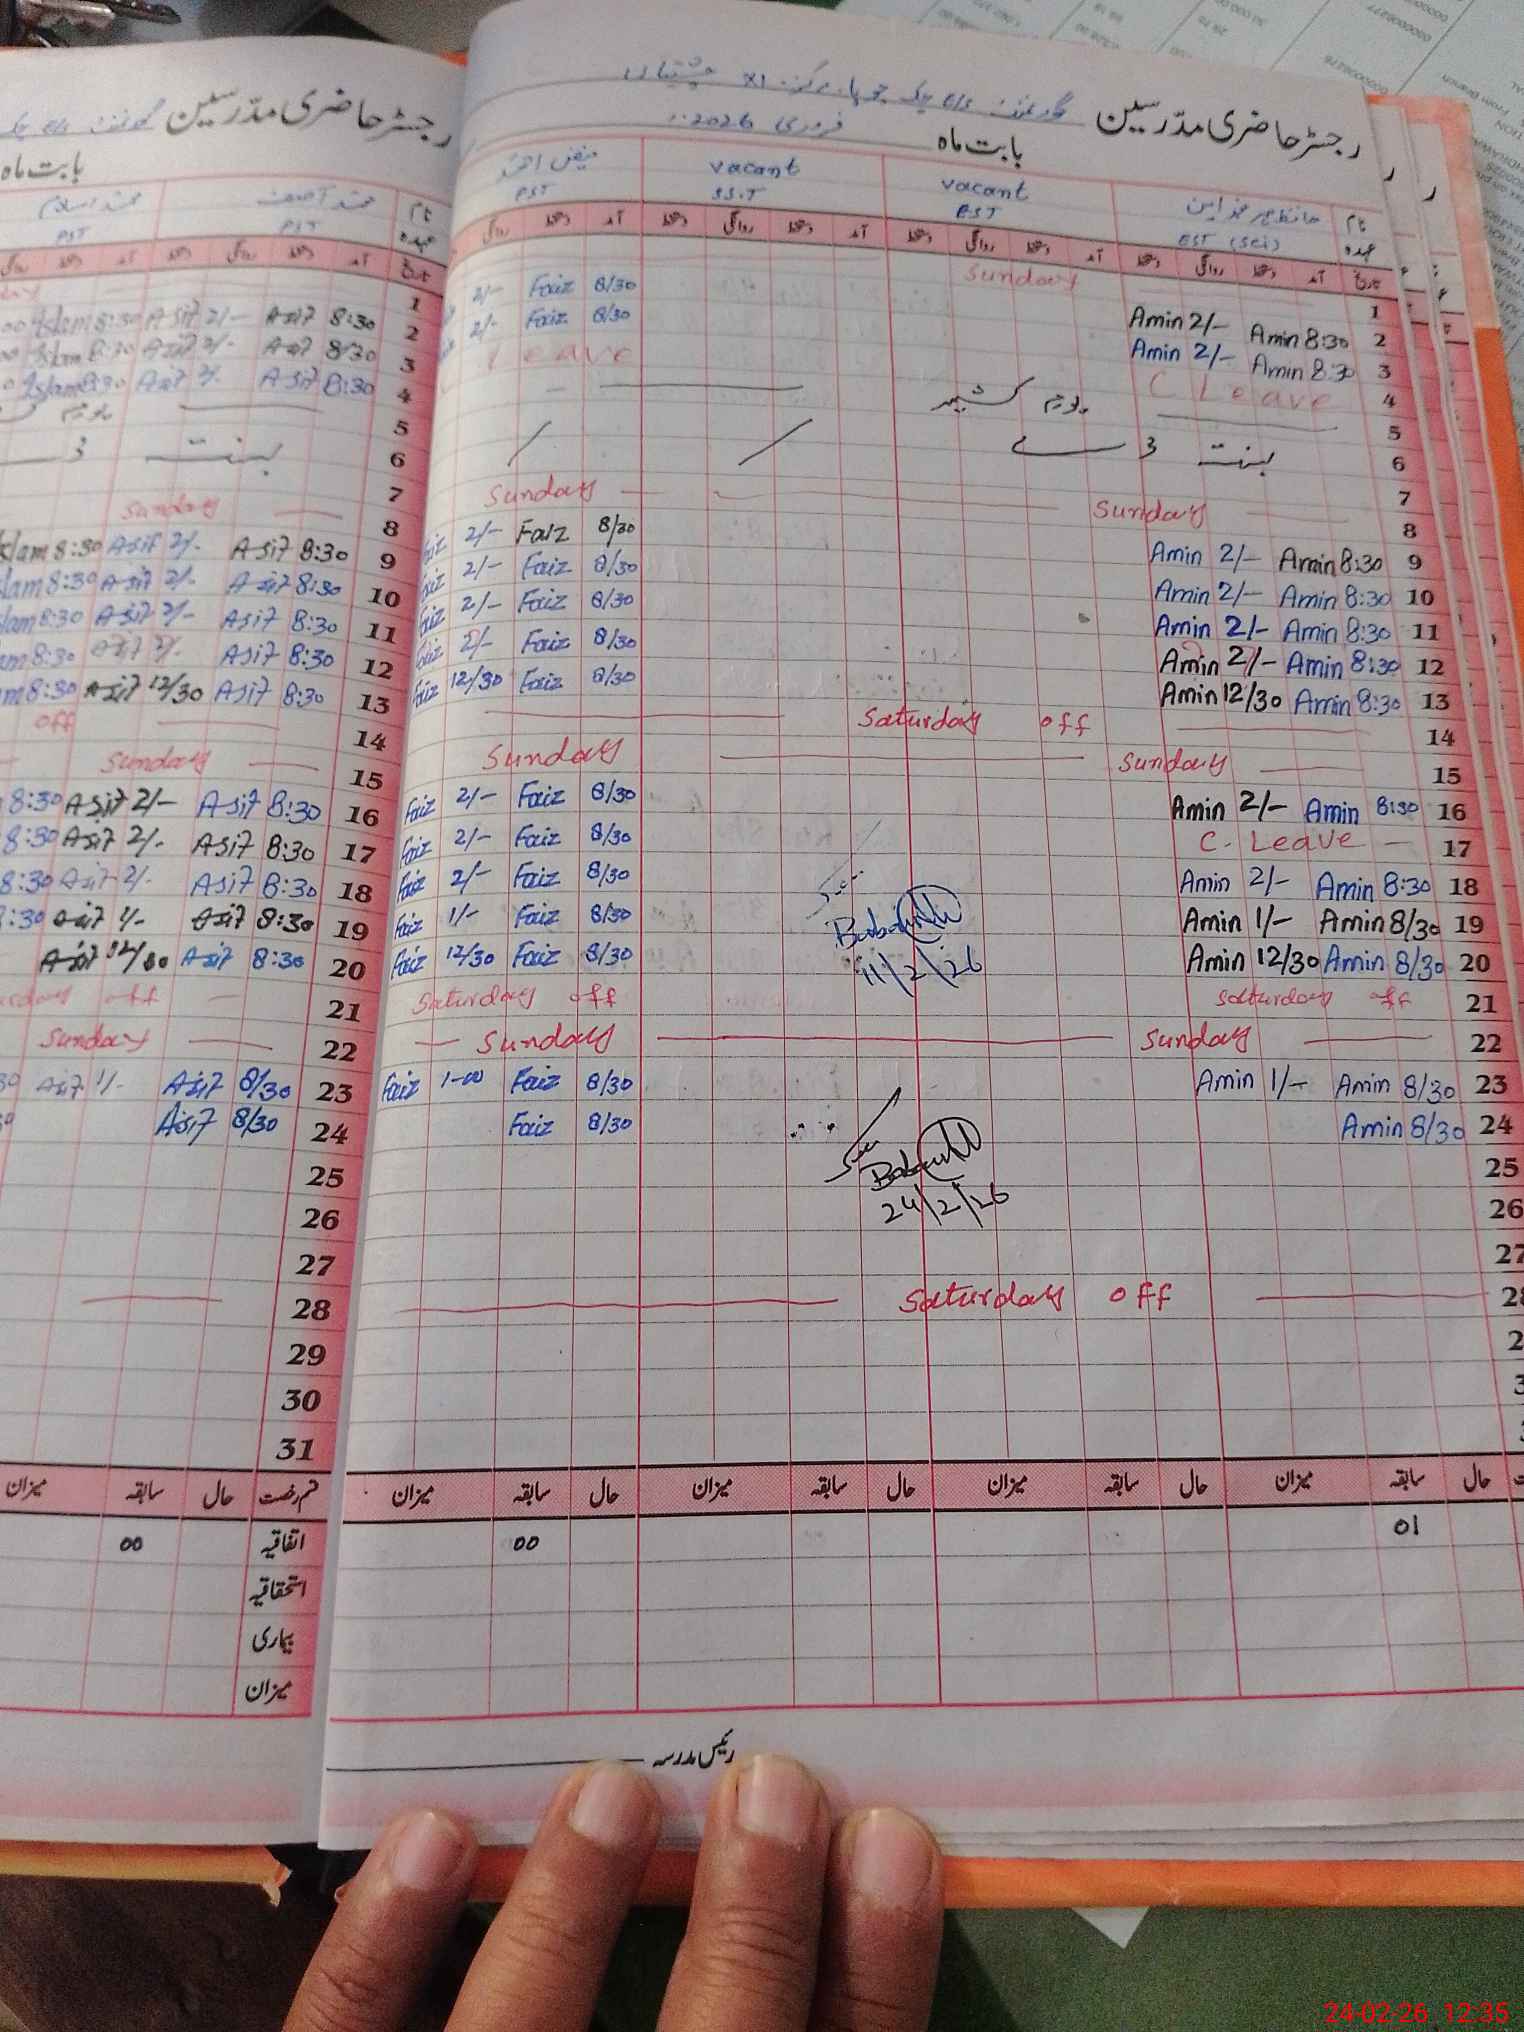 رجسٹر حاضری مدرسین گورنمنٹ e/s چک
بابت ماہ
نام محمد آصف محمد اسلام
عہدہ PST PST
تاریخ آمد دستخط روانگی دستخط آمد دستخط روانگی
1
2 8:30 Asif 2/- Asif 8:30 Islam
3 8/30 Asif 2/- Asif 8:30 Islam
4 8:30 Asif 2/- Asif 8:30 Islam
5 یوم
6 بسنت 3
7
8 Sunday
9 8:30 Asif 2/- Asif 8:30
10 8:30 Asif 2/- Asif 8:30
11 8:30 Asif 2/- Asif 8:30
12 8:30 Asif 2/- Asif 8:30
13 8:30 Asif 12/30 Asif 8:30
14 off
15 Sunday
16 8:30 Asif 2/- Asif 8:30
17 8:30 Asif 2/- Asif 8:30
18 8:30 Asif 2/- Asif 8:30
19 8:30 Asif 1/- Asif
20 8:30 Asif 12/30 Asif
21 off
22 Sunday
23 8/30 Asif 1/- Asif
24 8/30 Asif
25
26
27
28
29
30
31
قسم رخصت حال سابقہ میزان
اتفاقیہ 00
استحقاقیہ
بیماری
میزان
رجسٹر حاضری مدرسین گورنمنٹ e/s چک مرکز XI چشتیاں
بابت ماہ فروری 2026
نام حافظ محمد امین vacant vacant فیض احمد
عہدہ EST (Sci) EST SS.T PST
تاریخ آمد دستخط روانگی دستخط آمد دستخط روانگی دستخط آمد دستخط روانگی دستخط آمد دستخط روانگی
1 Sunday
2 Amin 8:30 Amin 2/- 8/30 Faiz 2/-
3 Amin 8:30 Amin 2/- 8/30 Faiz 2/-
4 C Leave Leave
5 یوم کشمیر
6 بسنت 3
7
8 Sunday Sunday
9 Amin 8:30 Amin 2/- 8/30 Faiz 2/- Faiz
10 Amin 8:30 Amin 2/- 8/30 Faiz 2/- Faiz
11 Amin 8:30 Amin 2/- 8/30 Faiz 2/- Faiz
12 Amin 8:30 Amin 2/- 8/30 Faiz 2/- Faiz
13 Amin 8:30 Amin 12/30 8/30 Faiz 12/30 Faiz
14 Saturday off
15 Sunday Sunday
16 Amin 8:30 Amin 2/- 8/30 Faiz 2/- Faiz
17 C. Leave 8/30 Faiz 2/- Faiz
18 Amin 8:30 Amin 2/- 8/30 Faiz 2/- Faiz
19 Amin 8/30 Amin 1/- 8/30 Faiz 1/- Faiz
20 Amin 8/30 Amin 12/30 8/30 Faiz 12/30 Faiz
11/2/26
21 Saturday off Saturday off
22 Sunday Sunday
23 Amin 8/30 Amin 1/- 8/30 Faiz 1-00 Faiz
24 Amin 8/30 8/30 Faiz
Seen
24/2/26
25
26
27
28 Saturday off
حال سابقہ میزان حال سابقہ میزان حال سابقہ میزان حال سابقہ میزان
01 00
رئیس مدرسہ
24-02-26 12:35